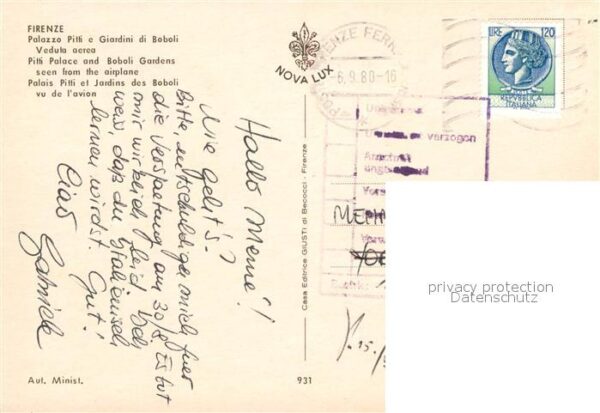 FIRENZE
Palazzo Pitti e Giardini di Boboli
Veduta aerea
Pitti Palace and Boboli Gardens
seen from the airplane
Palais Pitti et Jardins des Boboli
vu de l'avion
NOVA LUX
FIRENZE FERR
6.9.80-16
LIRE 120
REPVBBLICA
ITALIANA
verzogen
Casa Editrice GIUSTI di Becocci - Firenze
Hallo Meme!
Wie geht's?
Bitte, entschuldige mich fuer
die Verspaetung am 30/8. Es tut
mir wirklich leid. Ich
weiß, daß du Italienisch
lernen wirst. Gut!
Ciao
Gabriele
privacy protection
Datenschutz
Aut. Minist.
931